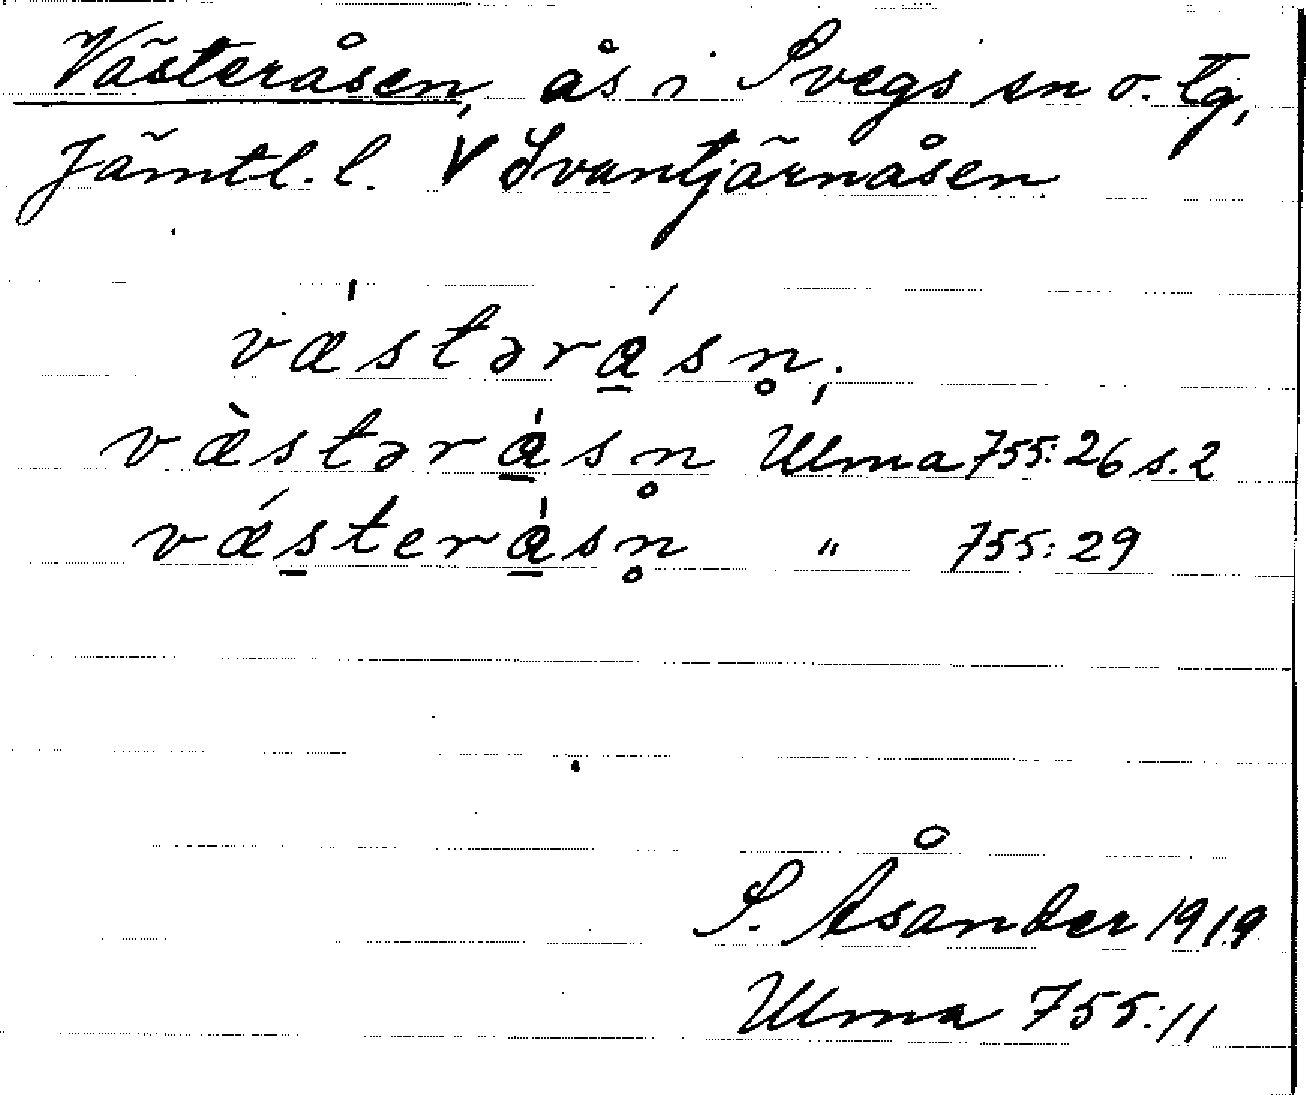 Västeråsen, ås i Svegs sn o. tg,
Jämtl. l. V Svantjärnåsen
væ̍stərá̲sn̥;
væ̀stəra̲̍sn̥ Ulma 755:26 s.2
vǽs̲tera̲̍sn̥ " 755:29
S. Åsander 1919
Ulma 755:11